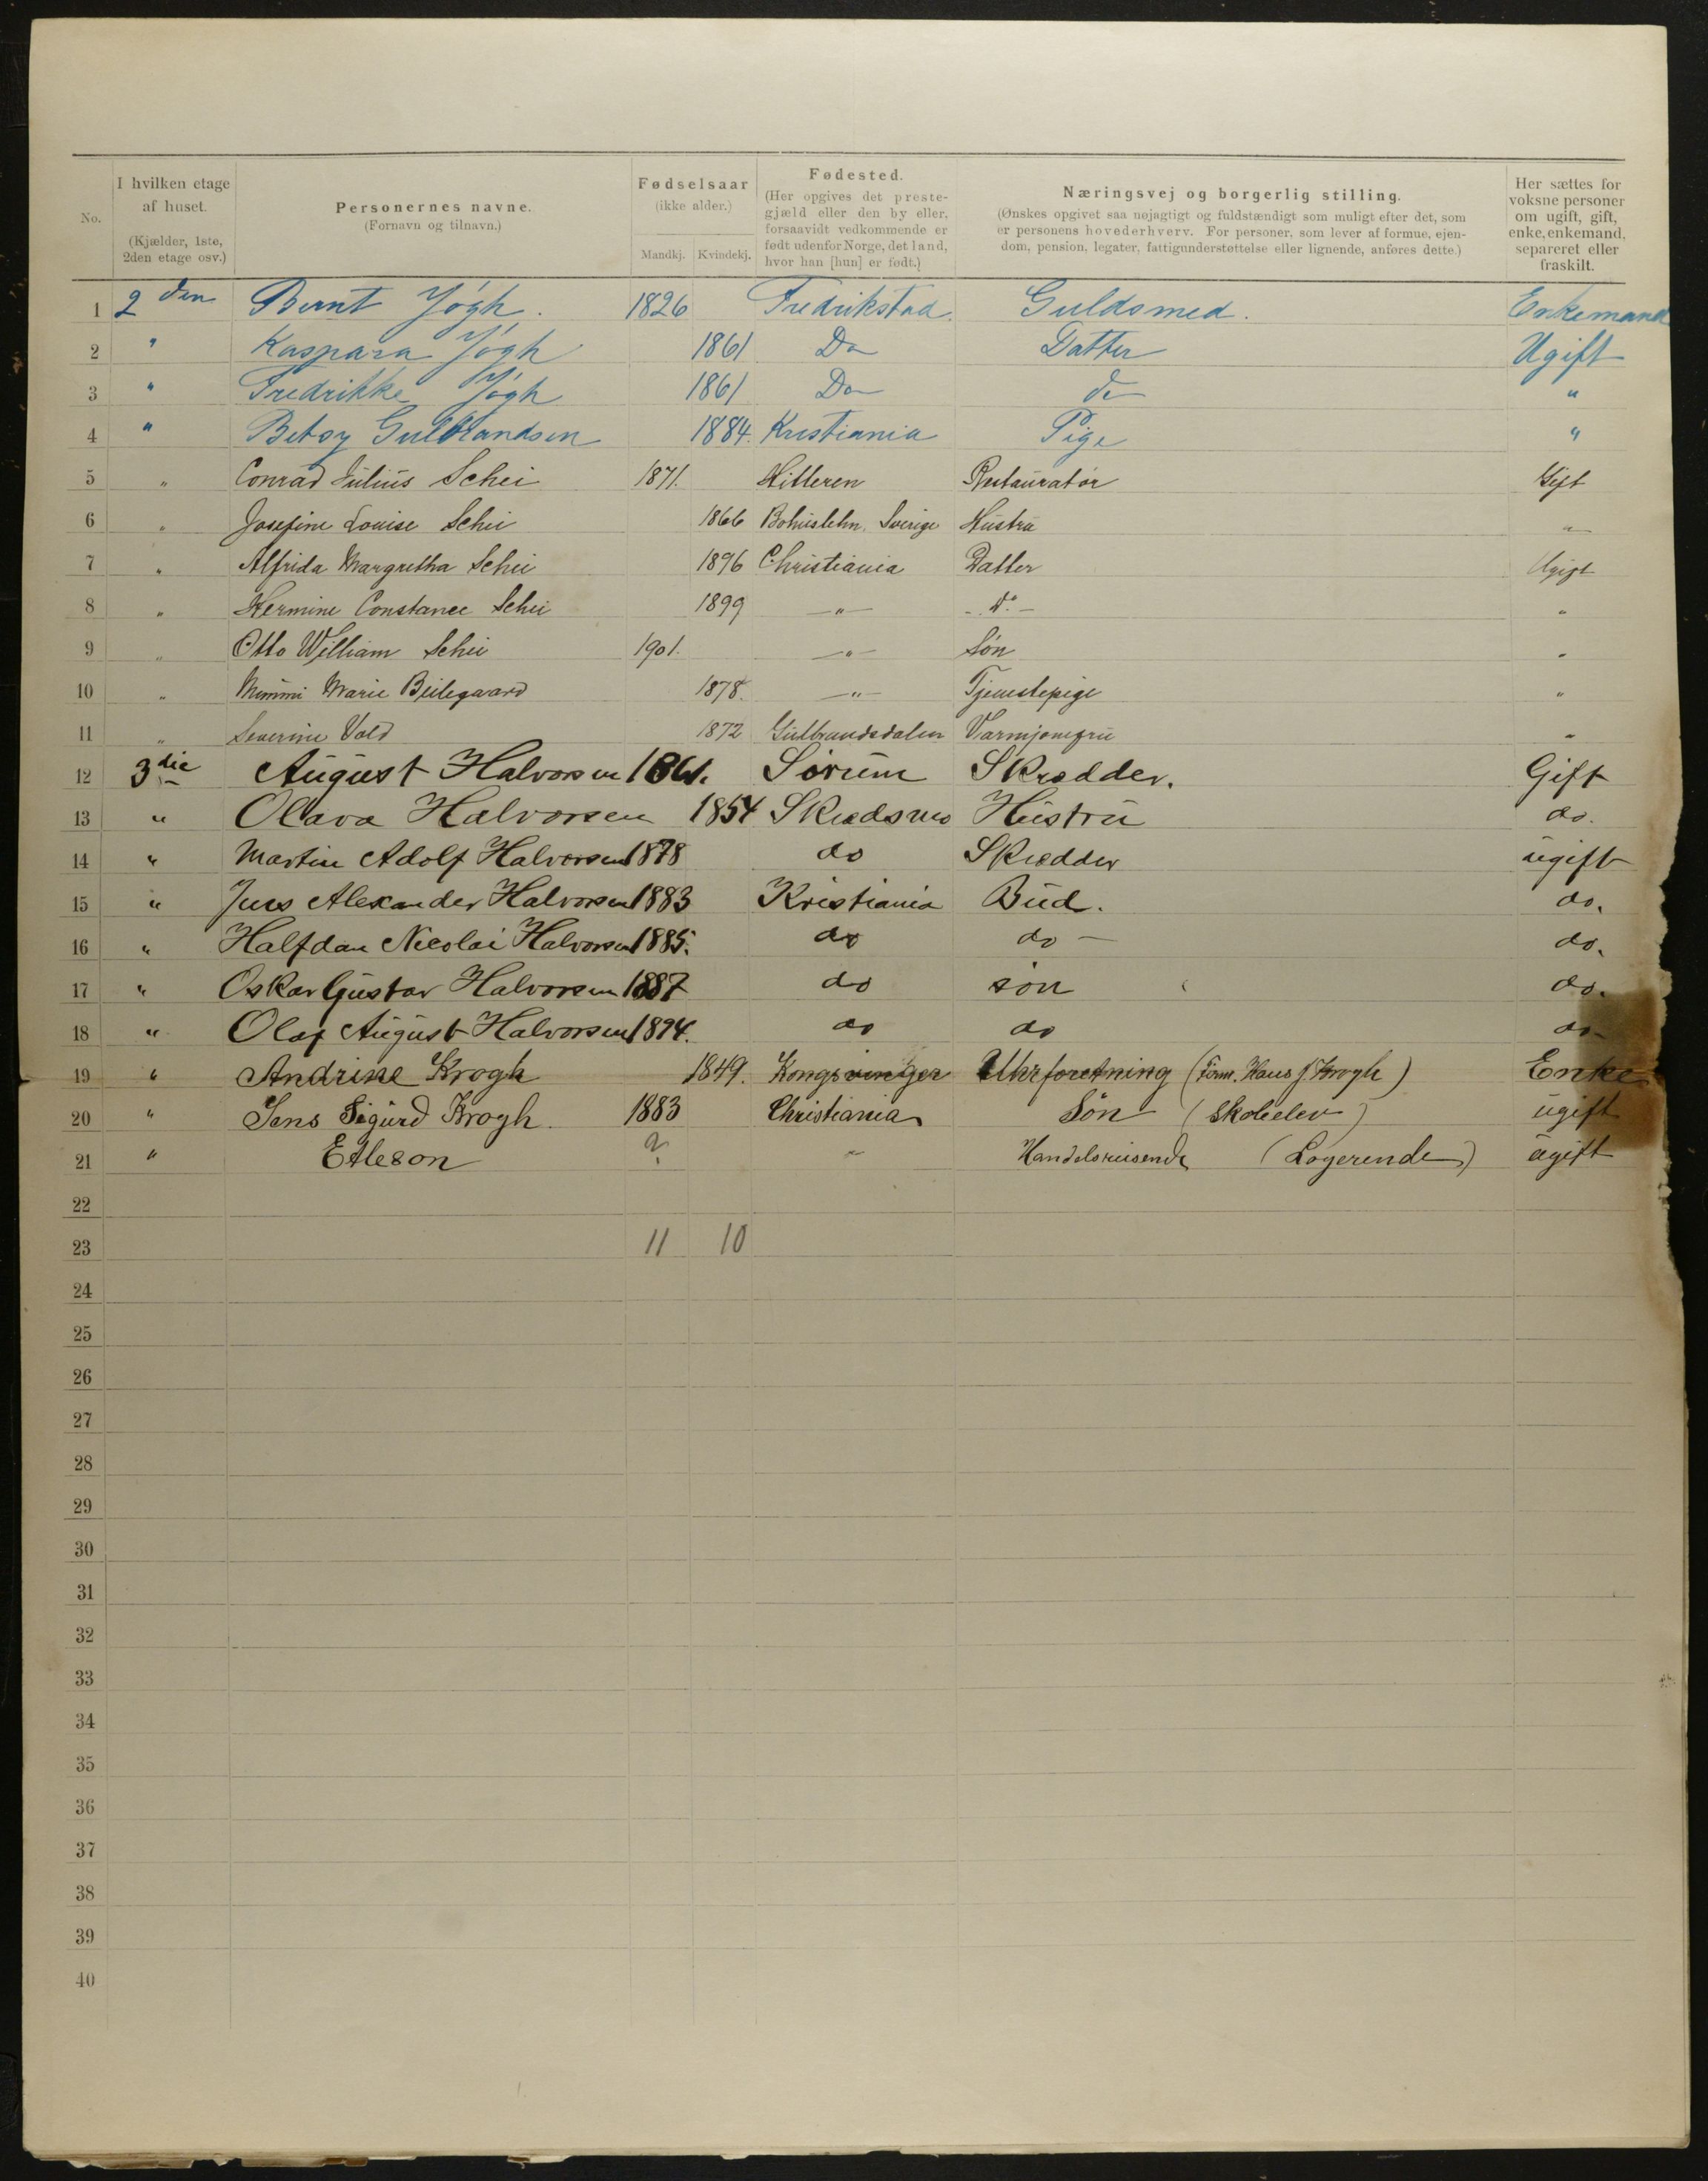 No.
I hvilken etage af huset. (Kjælder, 1ste, 2den etage osv.)
Personernes navne. (Fornavn og tilnavn.)
Fødselsaar (ikke alder.) Mandkj. Kvindekj.
Fødested. (Her opgives det prestegjæld eller den by eller, forsaavidt vedkommende er født udenfor Norge, det land, hvor han [hun] er født.)
Næringsvej og borgerlig stilling. (Ønskes opgivet saa nøjagtigt og fuldstændigt som muligt efter det, som er personens hovederhverv. For personer, som lever af formue, ejendom, pension, legater, fattigunderstøttelse eller lignende, anføres dette.)
Her sættes for voksne personer om ugift, gift, enke, enkemand, separeret eller fraskilt.
1 2den Bernt Jøgh. 1826 Fredrikstad. Guldsmed. Enkemand
2 " Kaspara Jøgh 1861 Do Datter Ugift
3 " Fredrikke Jøgh 1861 Do do "
4 " Betsy Gulbrandsen 1884. Kristiania Pige "
5 " Conrad Julius Schei 1871. Hitteren Restauratør Gift
6 " Josefine Louise Schei 1866 Bohuslehn. Sverige Hustru "
7 " Alfrida Margretha Schei 1896 Christiania Datter Ugift
8 " Hermine Constance Schei 1899 " do "
9 " Otto William Schei 1901. " Søn "
10 " Mimmi Marie 1878. " Tjenestepige "
11 " Severine Vold 1872 Gulbrandsdalen Varmjomfru "
12 3die August Halvorsen 1861. Sørum Skrædder. Gift
13 " Olava Halvorsen 1854 Skedsmo Hustru do.
14 " Martin Adolf Halvorsen 1878 do Skrædder ugift
15 " Jens Alexander Halvorsen 1883 Kristiania Bud. do.
16 " Halfdan Nicolai Halvorsen 1885. do do do.
17 " Oskar Gustav Halvorsen 1887 do søn do.
18 " Olaf August Halvorsen 1894. do do do
19 " Andrine Krogh 1849. Kongsvinger Uhrforetning (Firm. Hans J. Krogh) Enke
20 " Jens Sigurd Krogh. 1883 Christiania Søn (Skoleelev) ugift
21 " Etleson ? " Handelsreisende (Logerende) ugift
22
23 11 10
24
25
26
27
28
29
30
31
32
33
34
35
36
37
38
39
40